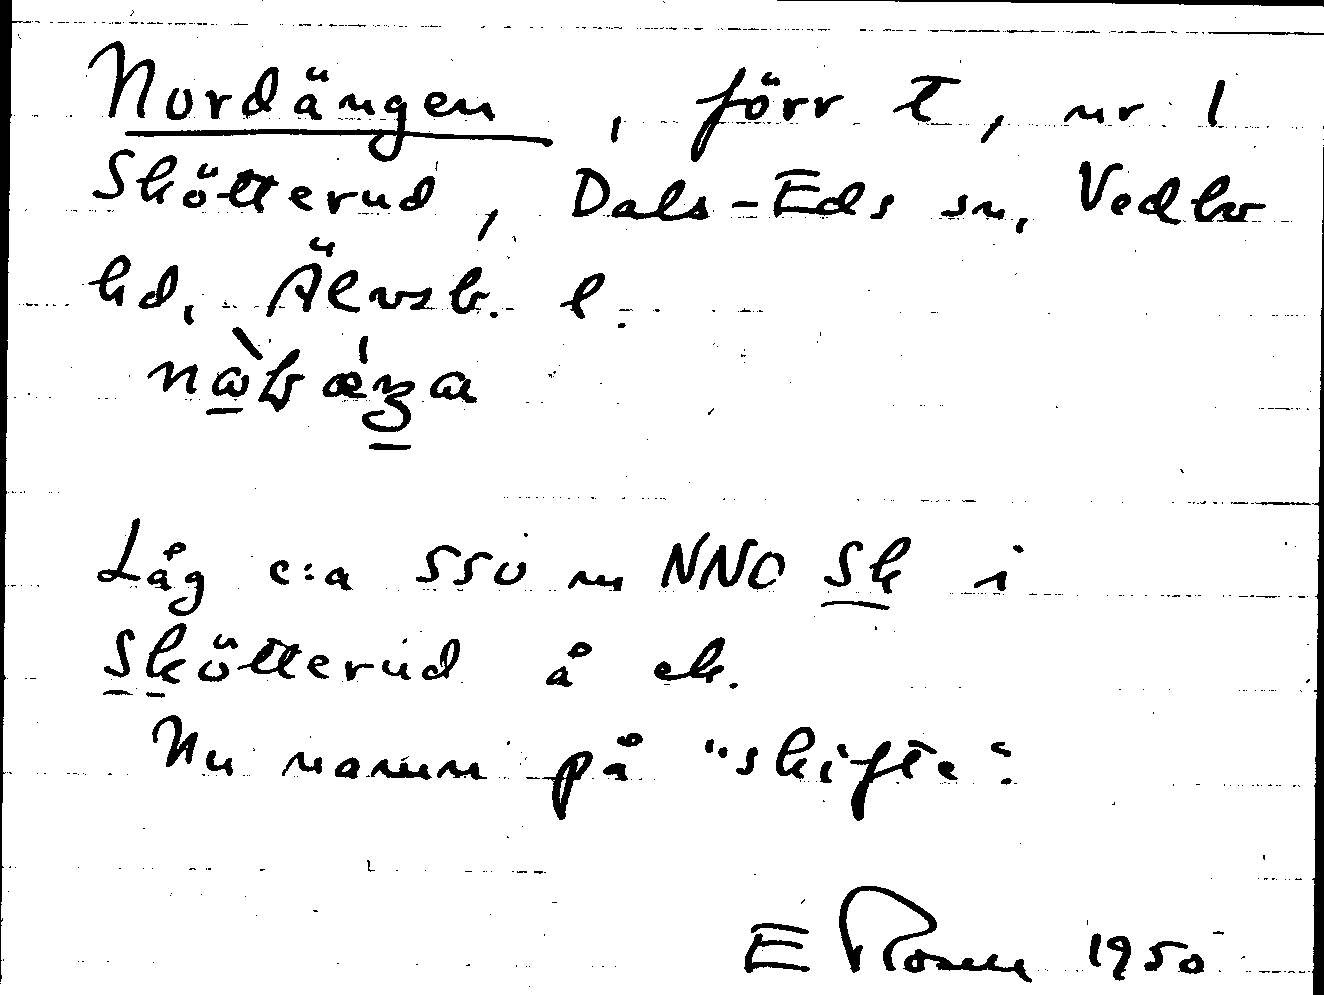 Nordängen, förr t, nr 1
Skötterud, Dals-Eds sn, Vedbo
hd, Älvsb. l.
Låg c:a 550 m NNO Sk i
Skötterud å ek.
Nu namn på "skifte".
E Rosen 1950